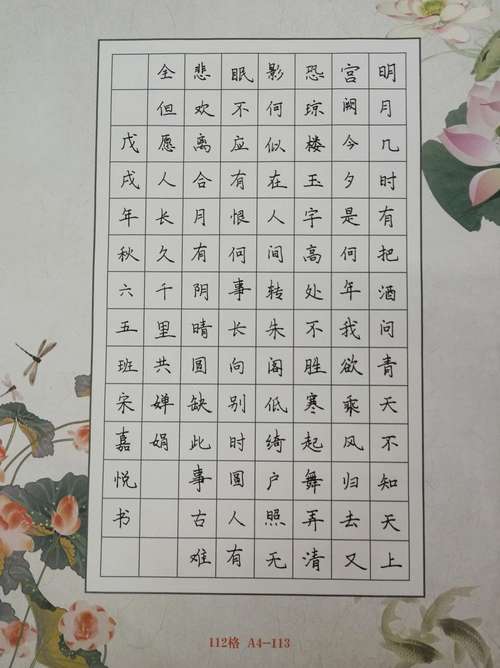 明月几时有把酒问青天不知天上
宫阙今夕是何年我欲乘风归去又
恐琼楼玉宇高处不胜寒起舞弄清
影何似在人间转朱阁低绮户照无
眠不应有恨何事长向别时圆人有
悲欢离合月有阴晴圆缺此事古难
全但愿人长久千里共婵娟
戊戌年秋六五班宋嘉悦书
112格 A4-113